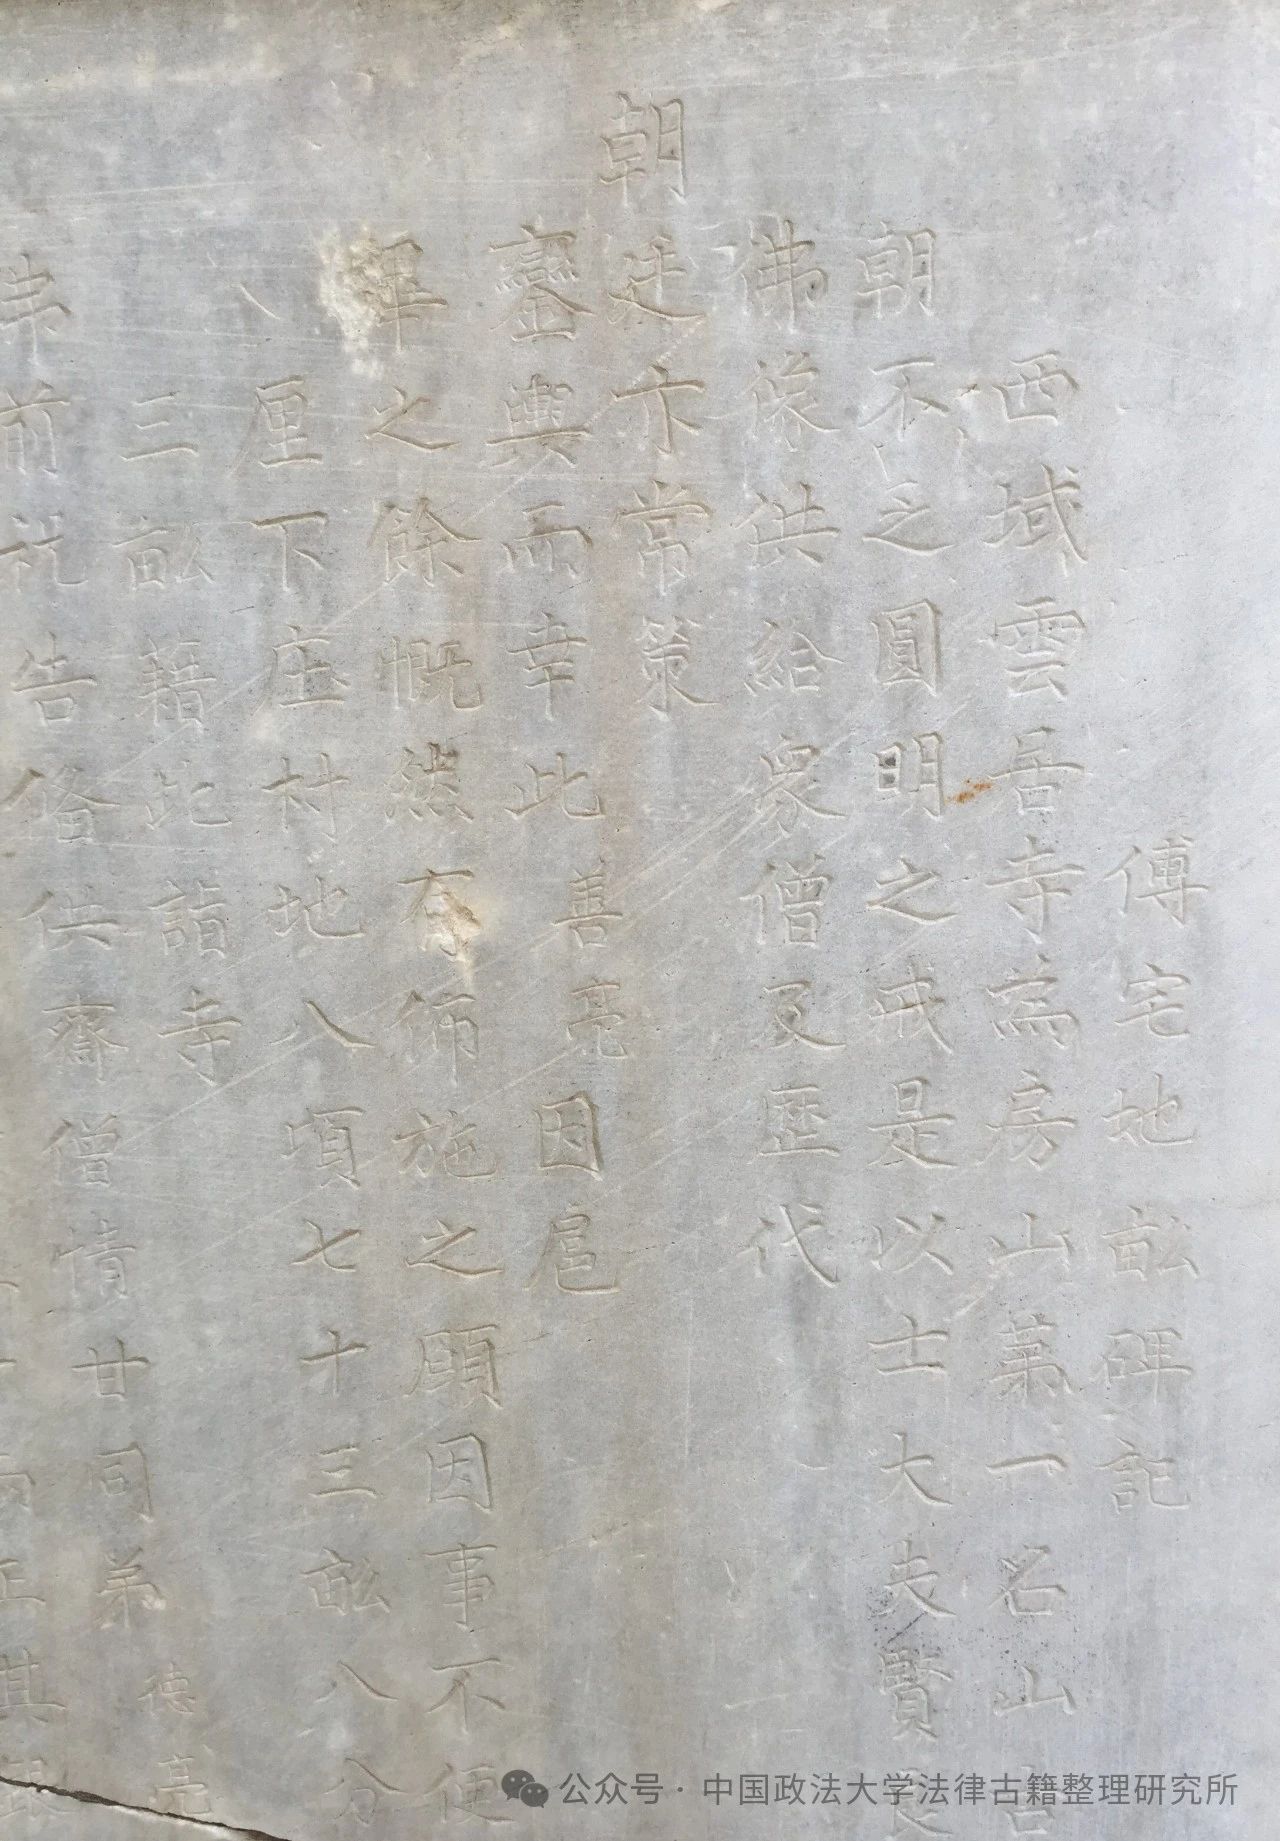 傅宅地畝碑記
西域雲居寺為房山第一名山古
朝不之圓明之戒是以士大夫賢
佛像供給眾僧又歷代
朝廷亦常策
鑾輿而幸此善亮因扈
軍之餘慨然有佈施之願因事不便
八厘下庄村地八頃七十三畝八分
三畝籍此詣寺
弗前祝告俻供齋僧情甘同弟德亮
正其
公众号·中国政法大学法律古籍整理研究所